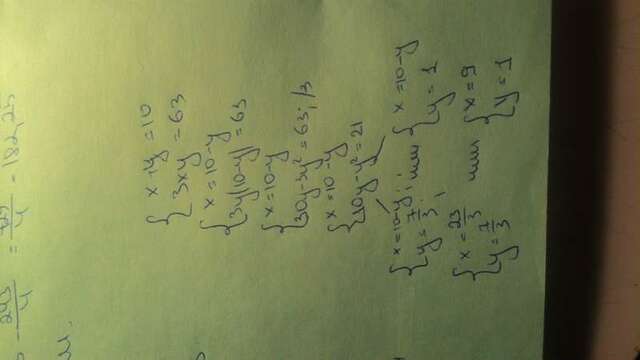 243/4 = 729/4 = 182,25
{ x + y = 10
3xy = 63
{ x = 10-y
3y(10-y) = 63
{ x = 10-y
30y-3y² = 63; /3
{ x = 10-y
10y-y² = 21
{ x = 10-y; или { x = 10-y
y = 7/3; y = 1
{ x = 23/3 или { x = 9
y = 7/3 y = 1